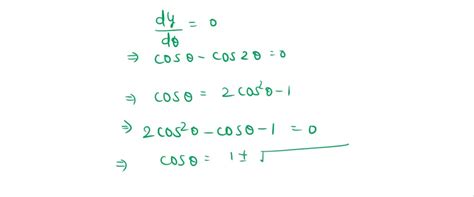 dy/dθ = 0
⇒ cosθ - cos2θ = 0
⇒ cosθ = 2cos²θ - 1
⇒ 2cos²θ - cosθ - 1 = 0
⇒ cosθ = 1 ± √